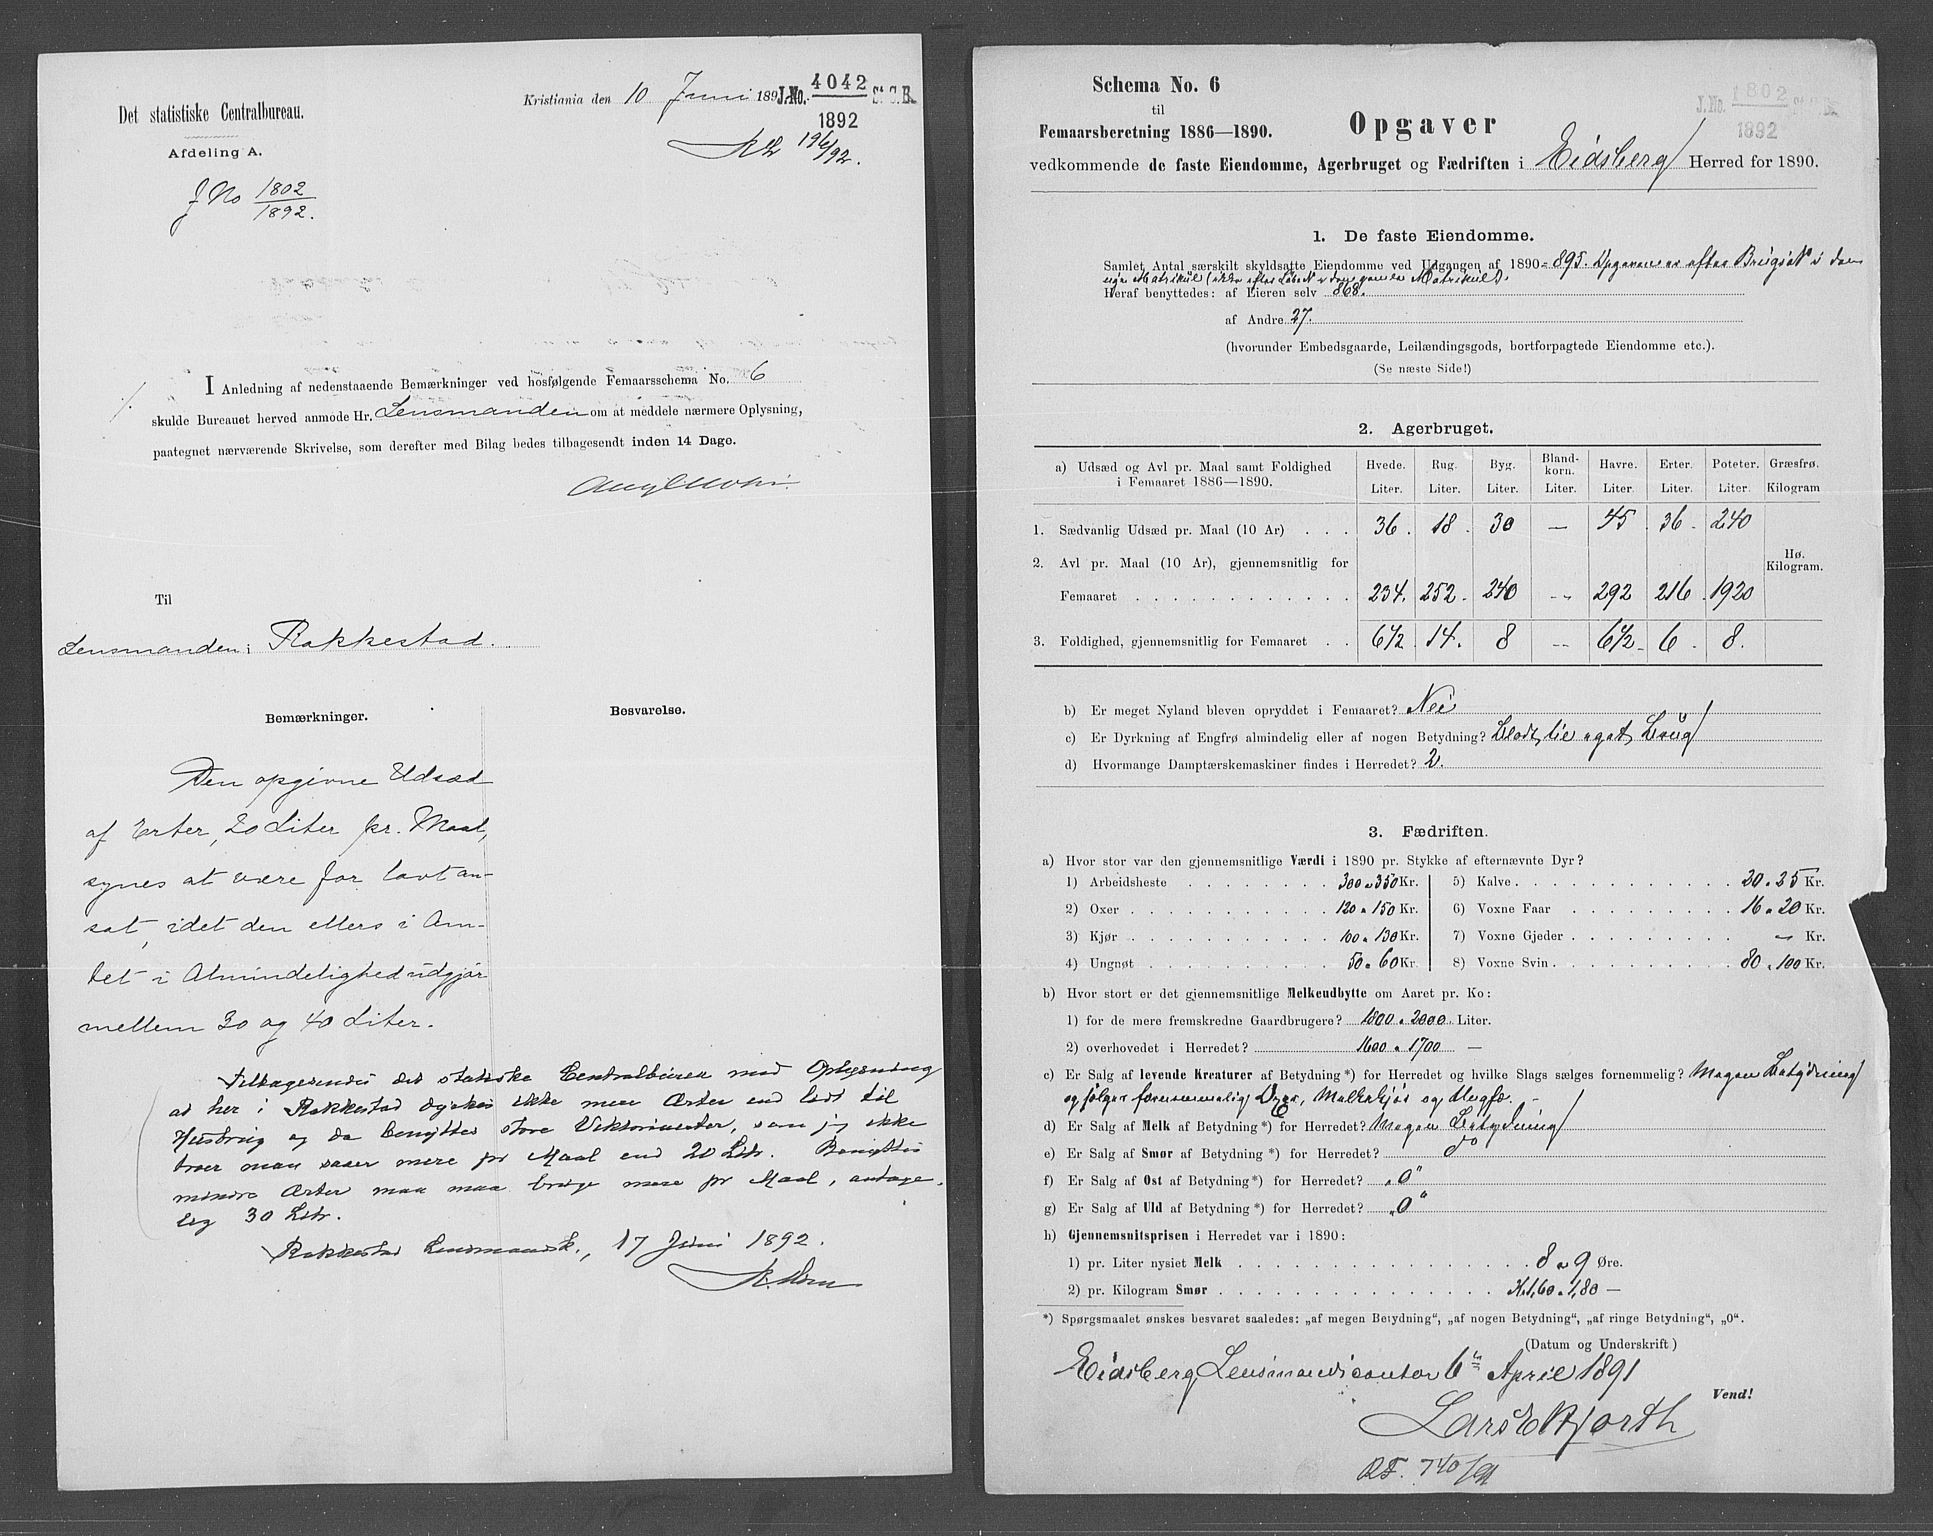 Det statistiske Centralbureau.
Afdeling A.
J No 1802
1892.
Kristiania den 10 Juni 189
J.No. 4042 St. C. B.
1892
19/6 92.
I Anledning af nedenstaaende Bemærkninger ved hosfølgende Femaarsschema No. 6
skulde Bureauet herved anmode Hr. Lensmanden om at meddele nærmere Oplysning,
paategnet nærværende Skrivelse, som derefter med Bilag bedes tilbagesendt inden 14 Dage.
Til
Lensmanden i Rakkestad.
Bemærkninger.
Besvarelse.
Den opgivne Udsæd
af Erter, 20 Liter pr. Maal,
synes at være for lavt an-
sat, idet den ellers i Am-
tet i Almindelighed udgjør
mellem 30 og 40 Liter.
Tilbagesendes det statiske Centralbureau med Oplysning
at her i Rakkestad dyrkes ikke mere Ærter end lidt til
Husbrug og da benyttes store Viktoriaerter, som jeg ikke
troer man saaer mere pr Maal end 20 Ltr. Benyttes
mindre Ærter maa man bruge mere pr Maal, antage-
lig 30 Ltr.
Rakkestad Lensmandsk., 17 Juni 1892.
Schema No. 6
til
Femaarsberetning 1886—1890.
Opgaver
J.No. 1802 St. C. B.
1892
vedkommende de faste Eiendomme, Agerbruget og Fædriften i Eidsberg Herred for 1890.
1. De faste Eiendomme.
Samlet Antal særskilt skyldsatte Eiendomme ved Udgangen af 1890 = 895. Opgaven er efter Brugs N i den
nye Matrikul (ikke efter Løbe N i den gamle Matrikul).
Heraf benyttedes: af Eieren selv 868.
af Andre 27.
(hvorunder Embedsgaarde, Leilændingsgods, bortforpagtede Eiendomme etc.).
(Se næste Side!)
2. Agerbruget.
a) Udsæd og Avl pr. Maal samt Foldighed i Femaaret 1886—1890. Hvede. Liter. Rug. Liter. Byg. Liter. Bland-korn. Liter. Havre. Liter. Erter. Liter. Poteter. Liter. Græsfrø. Kilogram
1. Sædvanlig Udsæd pr. Maal (10 Ar) . . . 36. 18. 30 — 45. 36. 240
Hø.
Kilogram.
2. Avl pr. Maal (10 Ar), gjennemsnitlig for
Femaaret . . . 234. 252. 240 -- 292 216. 1920
3. Foldighed, gjennemsnitlig for Femaaret . . 6½. 14. 8 -- 6½. 6. 8.
b) Er meget Nyland bleven opryddet i Femaaret? Nei
c) Er Dyrkning af Engfrø almindelig eller af nogen Betydning? blodt til eget Brug
d) Hvormange Damptærskemaskiner findes i Herredet? 2.
3. Fædriften.
a) Hvor stor var den gjennemsnitlige Værdi i 1890 pr. Stykke af efternævnte Dyr?
1) Arbeidsheste . . . 300 a 350 Kr. 5) Kalve . . . 20 a 25 Kr.
2) Oxer . . . 120 a 150 Kr. 6) Voxne Faar . . . 16 a 20 Kr.
3) Kjør . . . 100 a 130 Kr. 7) Voxne Gjeder . . . — Kr.
4) Ungnøt . . . 50 a 60 Kr. 8) Voxne Svin . . . 80 a 100 Kr.
b) Hvor stort er det gjennemsnitlige Melkeudbytte om Aaret pr. Ko:
1) for de mere fremskredne Gaardbrugere? 1800 a 2000 Liter.
2) overhovedet i Herredet? 1600 a 1700 —
c) Er Salg af levende Kreaturer af Betydning*) for Herredet og hvilke Slags sælges fornemmelig? Megen Betydning
og sælges fornemmelig Oxer, Melkekjør og Ungfæ. -
d) Er Salg af Melk af Betydning*) for Herredet? Megen Betydning
e) Er Salg af Smør af Betydning*) for Herredet? do
f) Er Salg af Ost af Betydning*) for Herredet? „0“
g) Er Salg af Uld af Betydning*) for Herredet? „0“
h) Gjennemsnitsprisen i Herredet var i 1890:
1) pr. Liter nysiet Melk . . . 8 a 9 Øre.
2) pr. Kilogram Smør . . . Kr 1,60 a 1,80 —
*) Spørgsmaalet ønskes besvaret saaledes: „af megen Betydning“, „af nogen Betydning“, „af ringe Betydning“, „0“.
(Datum og Underskrift)
Eidsberg Lensmandscontor 6te April 1891
Vend!
Lars Hjorth
740/91